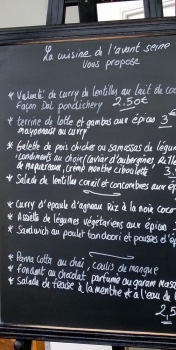 La cuisine de l'avant seine
vous propose
* Velouté de curry de lentilles au lait de coco
façon Dal pondichery 2.50€
* terrine de lotte et gambas aux épices 3
mayonnaise au curry
* Galette de pois chiches ou samossas de légum
condiments au choix (caviar d'aubergines,
de maquereaux, crème menthe ciboulette 3
* Salade de lentilles corail et concombres aux ép
* Curry d'épaule d'agneau Riz à la noix coco
* Assiette de légumes végétariens aux épices
* Sandwich au poulet tandoori et pousses d'ép
* Panna cotta au chaï, coulis de mangue
* fondant au chocolat parfumé au garam masa
* Salade de fraise à la menthe & à l'eau de
2,5